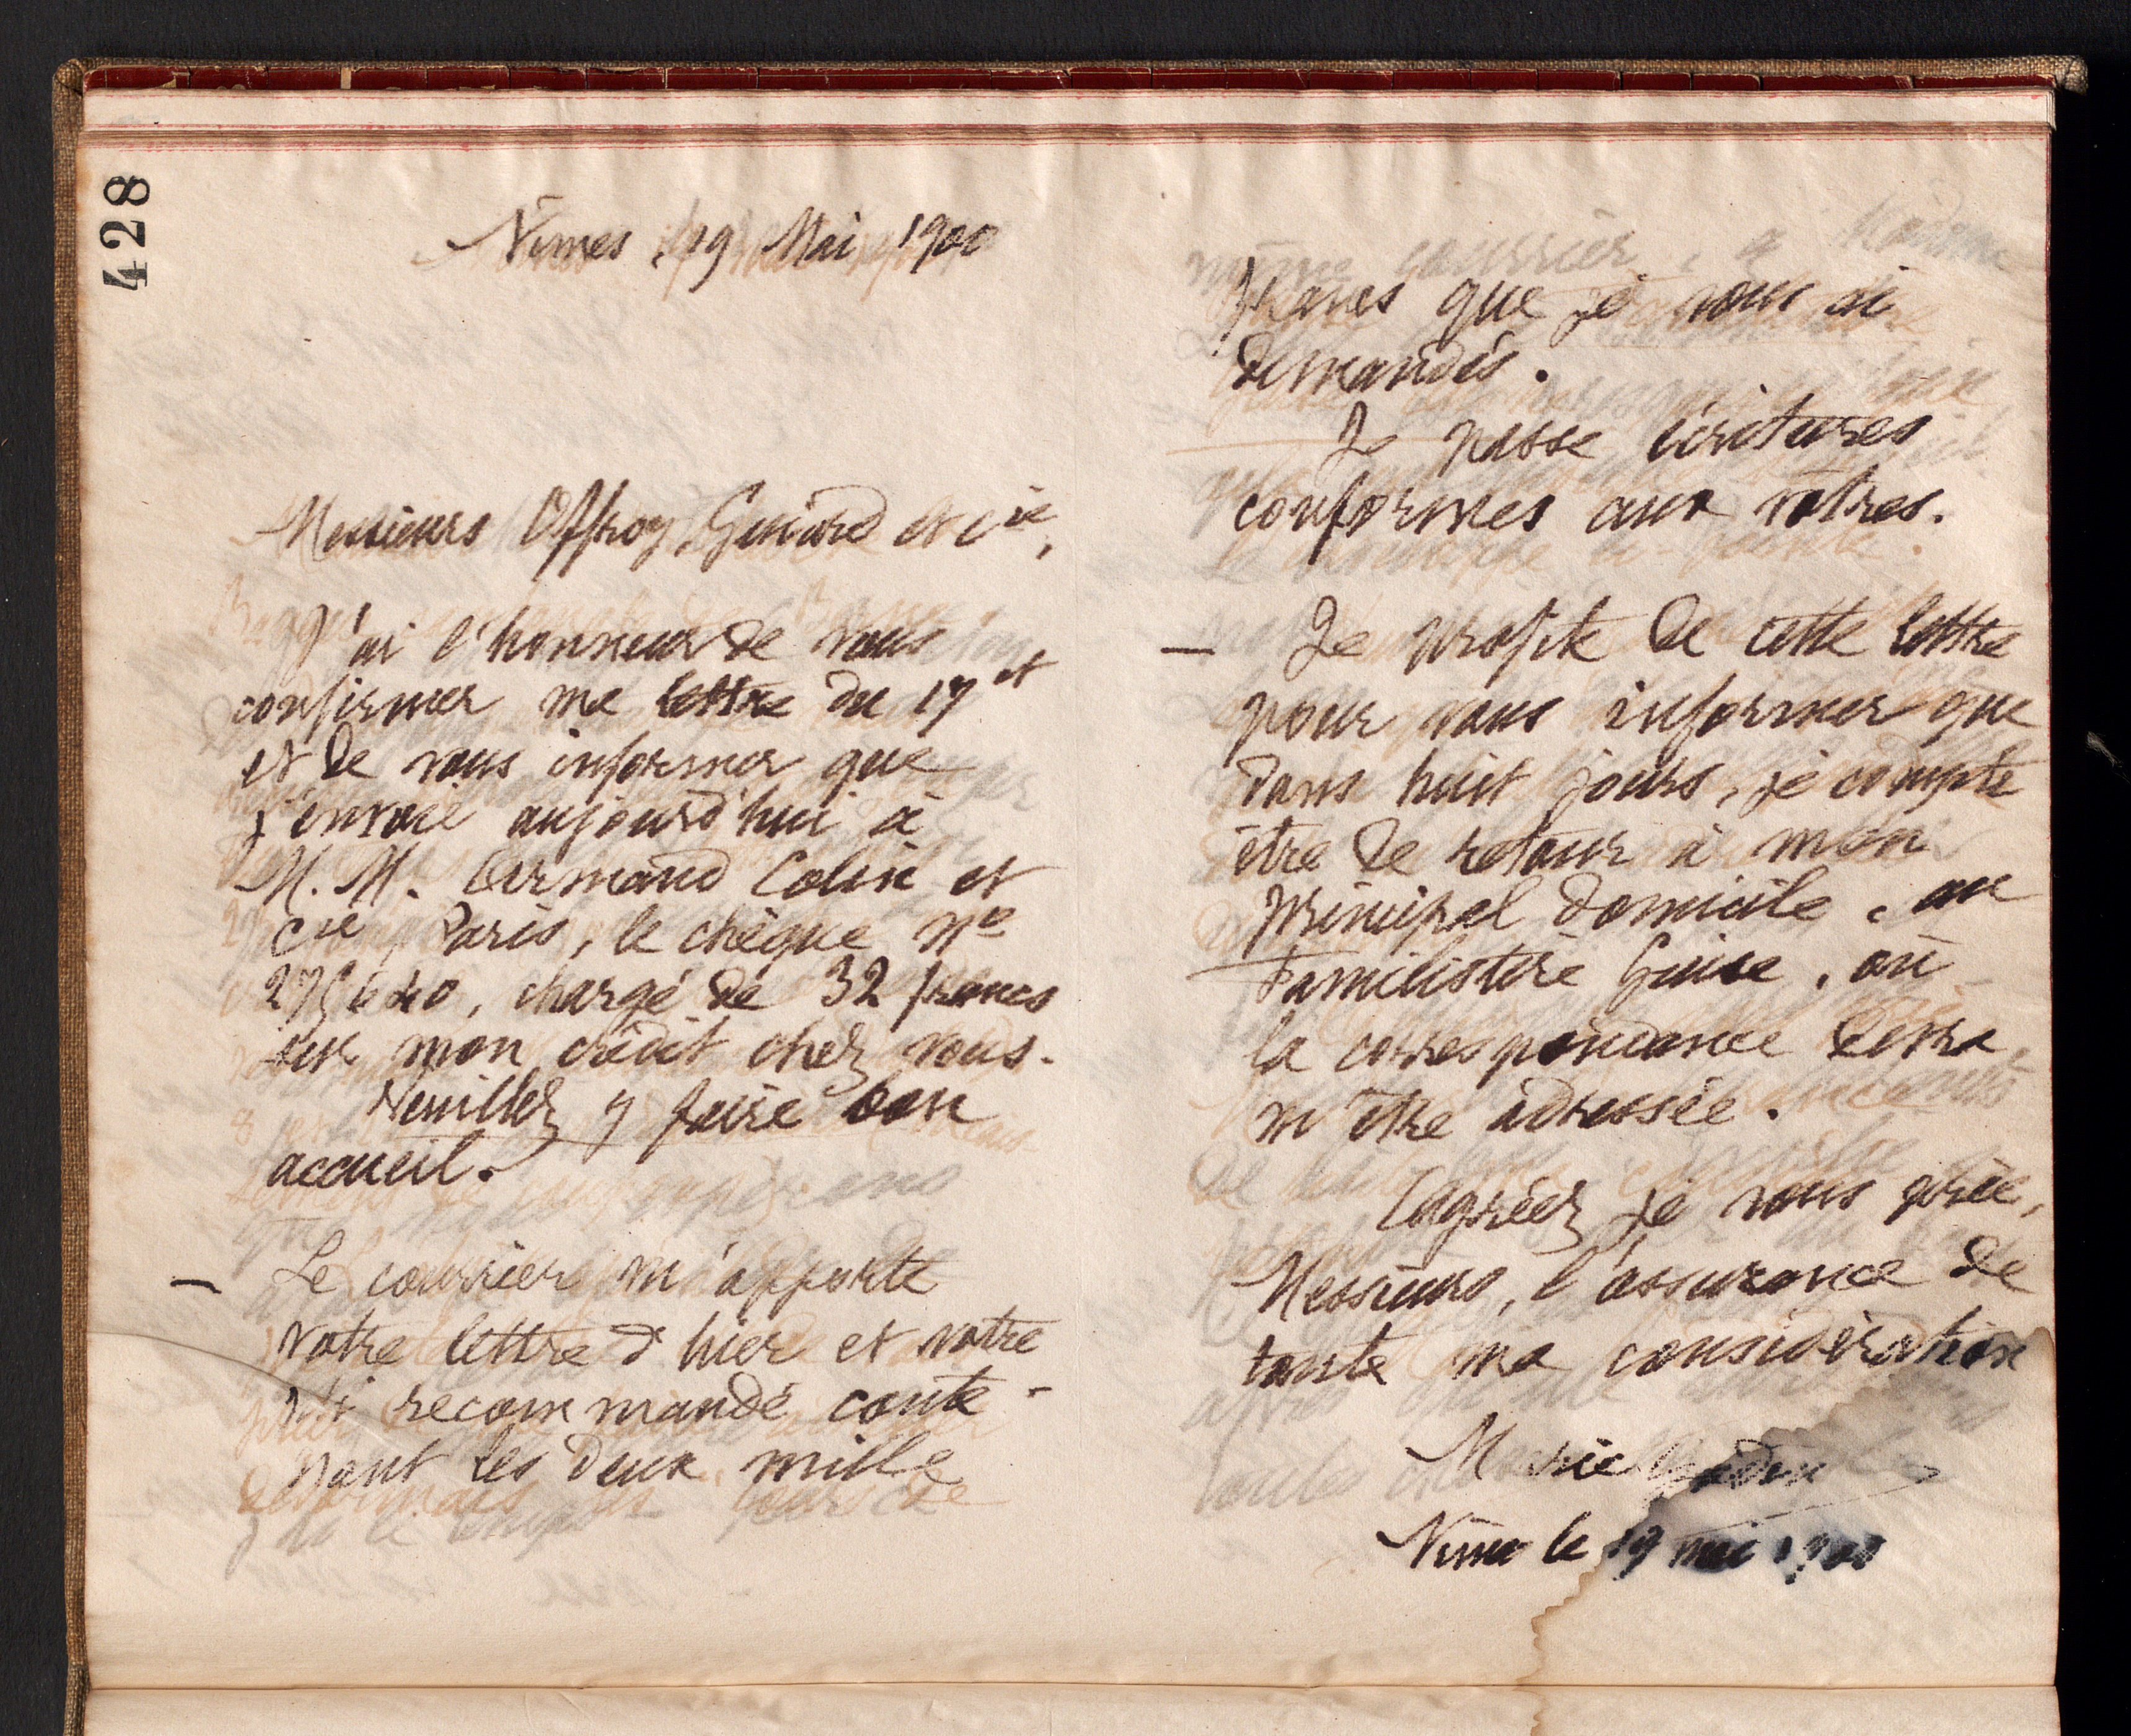 428
Nimes, 19 Mai 1900
Messieurs Offroy, Guiard et Cie,
J'ai l'honneur de vous
confirmer ma lettre du 17 ct
et de vous informer que
j'envoie aujourd'hui à
M. M. Armand Colin et
Cie Paris, le chèque No
chargé de 32 francs
sur mon crédit chez vous.
Veuillez y faire bon
accueil.
— Le courrier m'apporte
votre lettre d'hier et votre
pli recommandé conte-
nant les deux mille
francs que je vous ai
demandés.
Je passe écritures
conformes aux vôtres.
— Je profite de cette lettre
pour vous informer que
dans huit jours, je compte
être de retour à mon
principal domicile, au
Familistère Guise, où
la correspondance devra
m'être adressée.
Agréez je vous prie,
Messieurs, l'assurance de
toute ma considération
Marie Godin
Nimes le 19 mai 1900